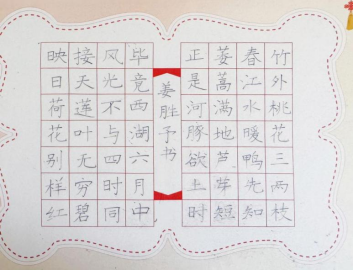 竹外桃花三两枝
春江水暖鸭先知
蒌蒿满地芦芽短
正是河豚欲上时
姜胜予书
毕竟西湖六月中
风光不与四时同
接天莲叶无穷碧
映日荷花别样红